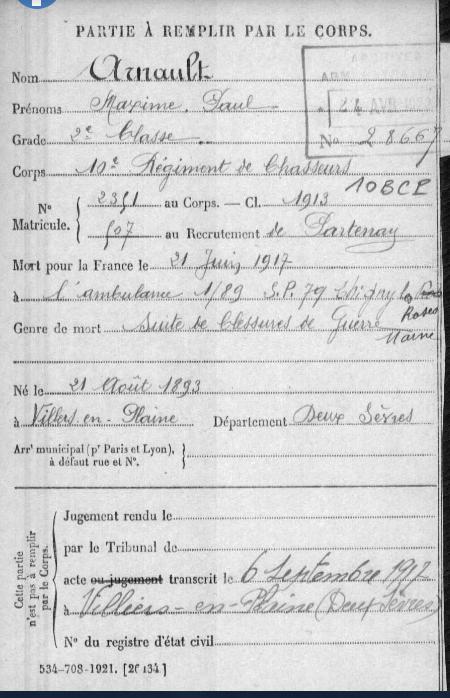 PARTIE À REMPLIR PAR LE CORPS.
Nom Arnault
Prénoms Maxime, Paul
Grade 2e Classe
No 28667
Corps 10e Régiment de Chasseurs
10 BCP
No Matricule. 2351 au Corps. — Cl. 1913
507 au Recrutement de Partenay
Mort pour la France le 21 Juin 1917
à l'ambulance 1/89 S.P. 79
Roses
Genre de mort Suite de blessures de Guerre
Marne
Né le 21 Août 1893
à Villers-en-Plaine Département Deux Sèvres
Arrt municipal (pr Paris et Lyon), à défaut rue et No.
Cette partie n'est pas à remplir par le Corps.
Jugement rendu le
par le Tribunal de
acte ou jugement transcrit le 6 Septembre 1917
à Villiers-en-Plaine (Deux Sèvres)
No du registre d'état civil
534-708-1921. [26434]